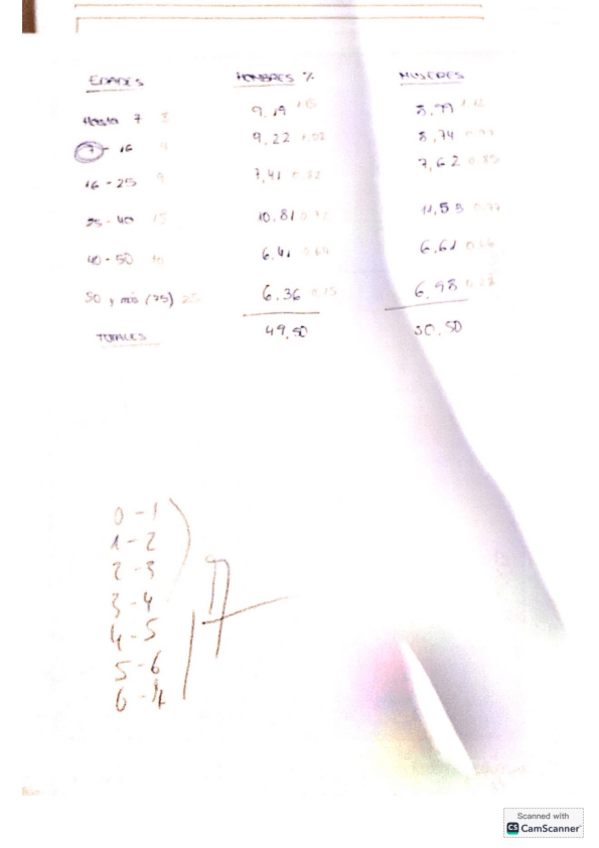 EDADES HOMBRES % MUJERES
Hasta 7 8 9,19 1.15 8,99 1.12
7 - 16 9 9,22 1.02 8,74 0.97
16 - 25 9 7,41 0.82 7,62 0.85
25 - 40 15 10,81 0.72 11,53 0.77
40 - 50 10 6,41 0.64 6,61 0.66
50 y más (75) 25 6,36 0.25 6,98
TOTALES 49,50 50,50
0 - 1
1 - 2
2 - 3
3 - 4
4 - 5
5 - 6
6 - 7
7
Scanned with
CS CamScanner